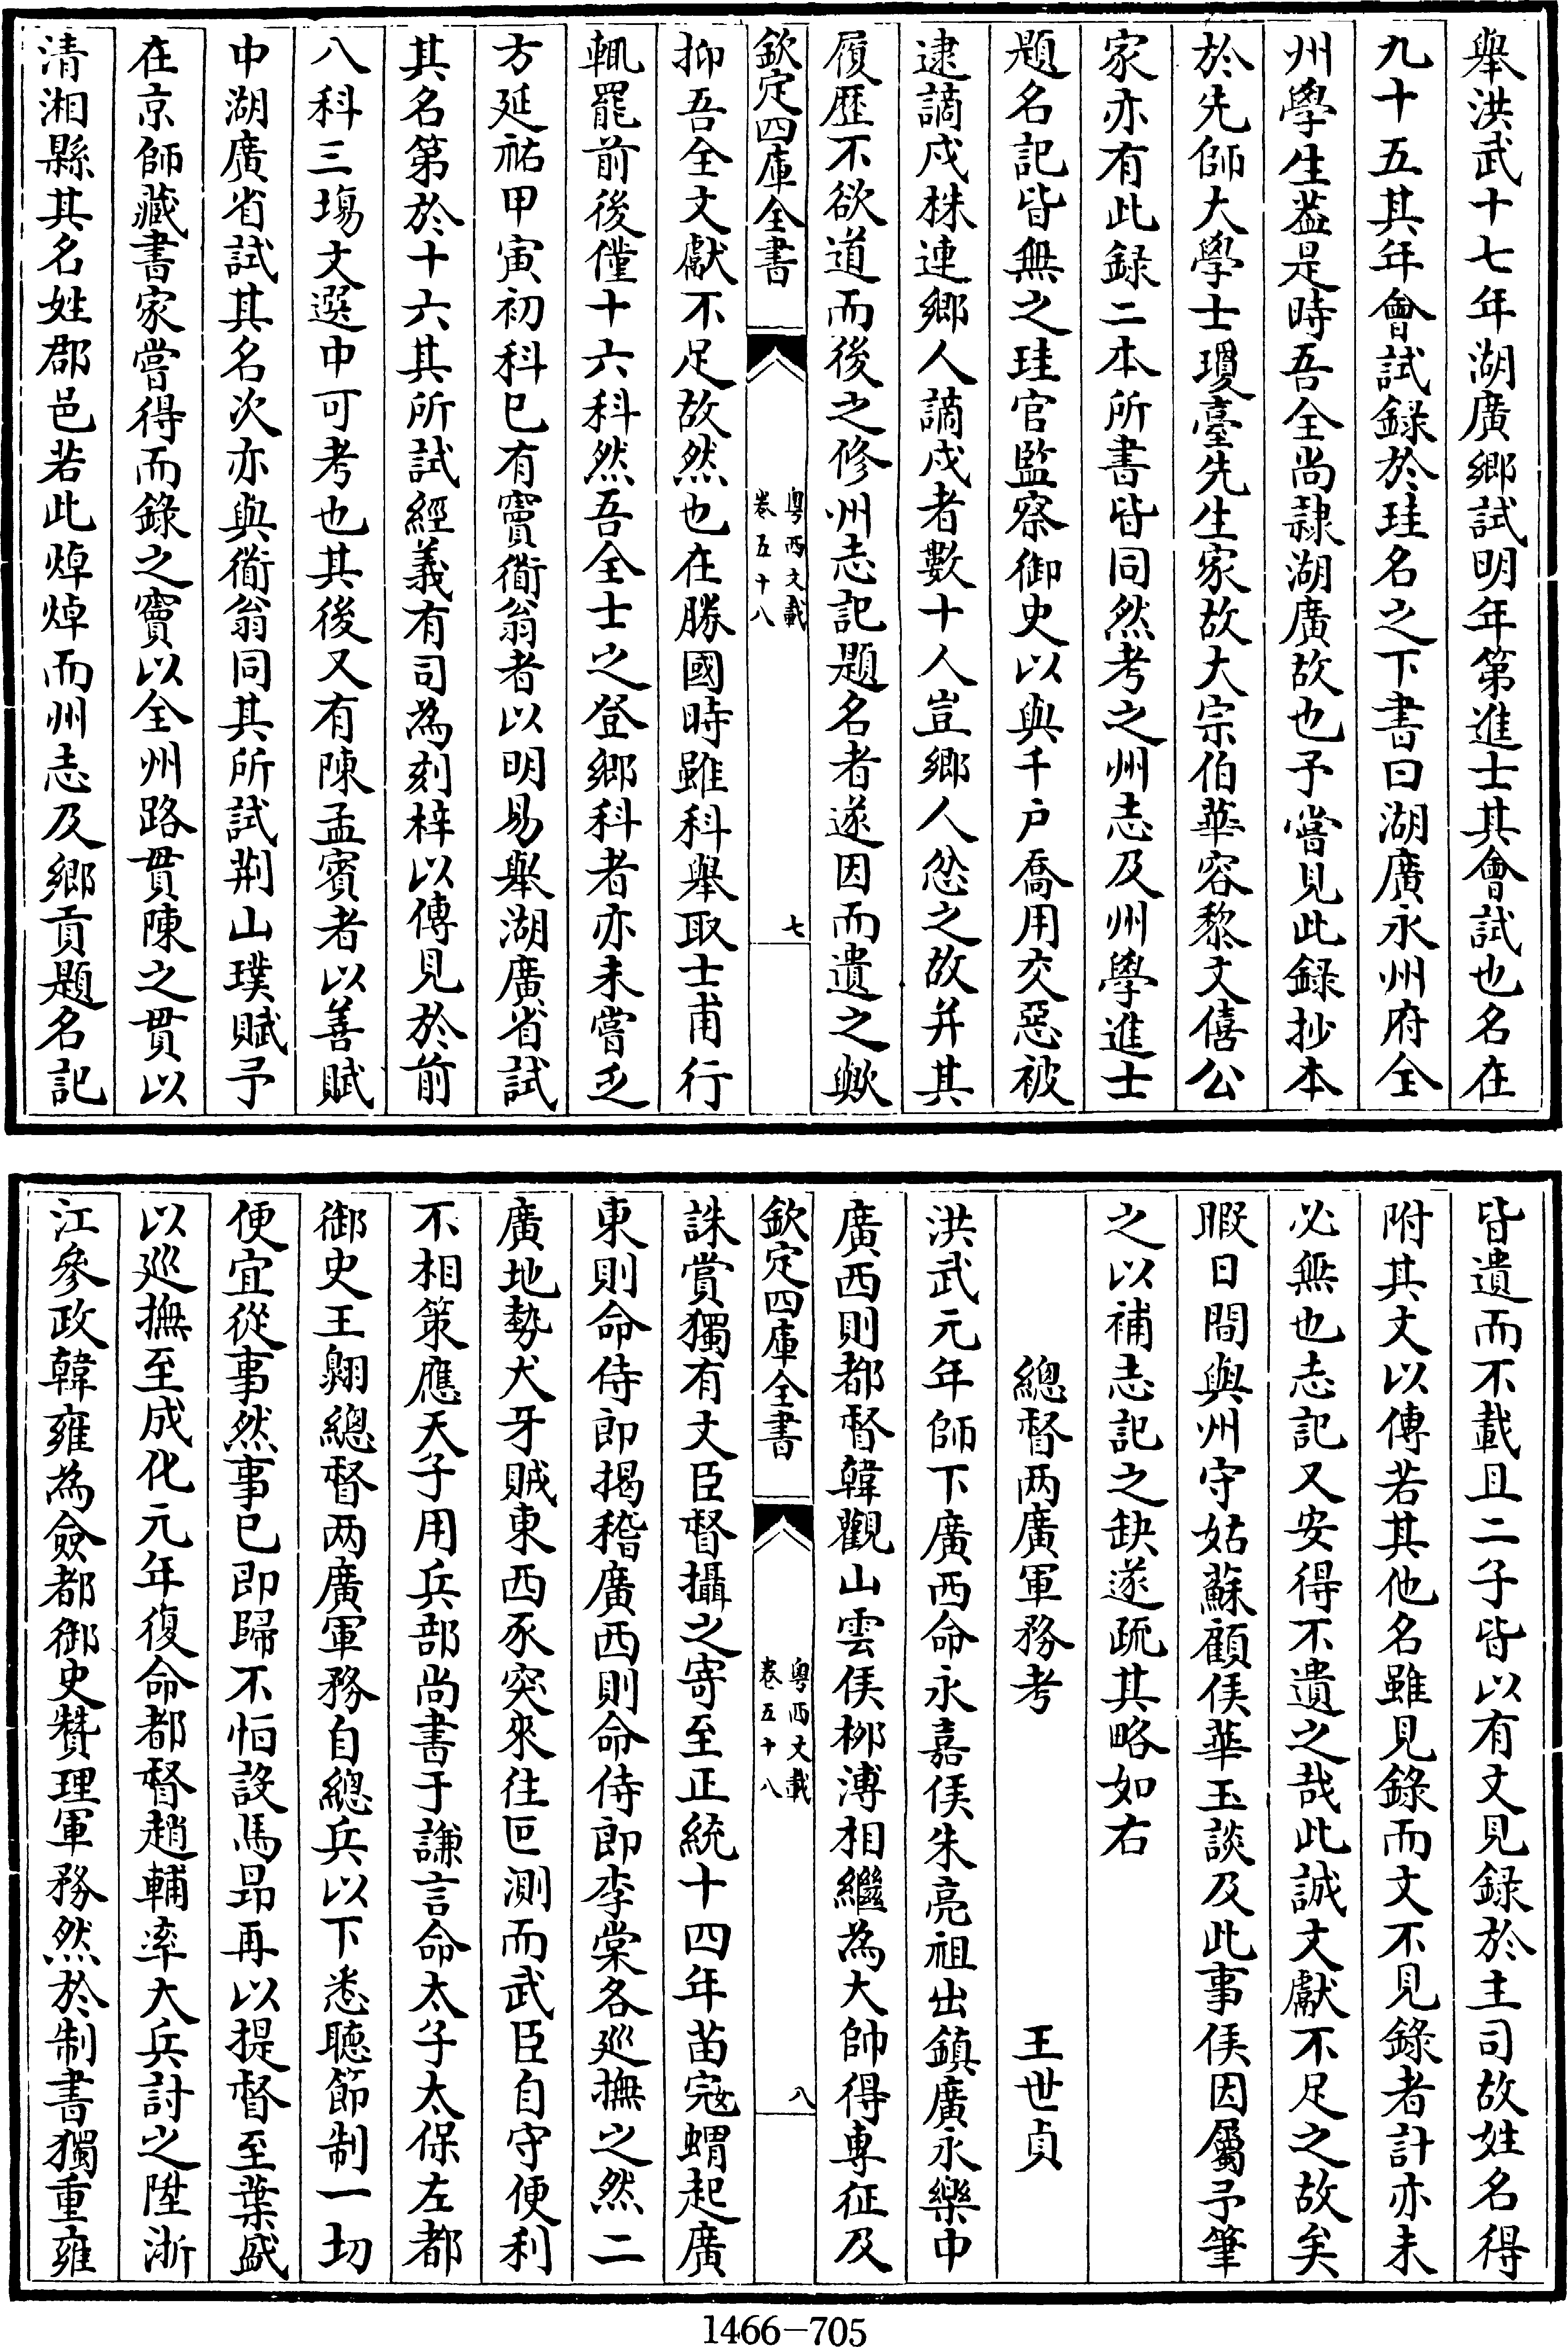 舉洪武十七年湖廣鄉試明年第進士其會試也名在
九十五其年會試録於珪名之下書曰湖廣永州府全
州學生葢是時吾全尚隷湖廣故也予嘗見此録抄本
於先師大學士瓊臺先生家故大宗伯華容黎文僖公
家亦有此録二本所書皆同然考之州志及州學進士
題名記皆無之珪官監察御史以與千户喬用交惡被
逮謫戍株連鄉人謫戍者數十人豈鄉人忿之故并其
履歴不欲道而後之修州志記題名者遂因而遺之歟
欽定四庫全書
粤西文載
卷五十八
七
抑吾全文獻不足故然也在勝國時雖科舉取士甫行
輒罷前後僅十六科然吾全士之登鄉科者亦未嘗乏
方延祐甲寅初科已有竇衜翁者以明易舉湖廣省試
其名第於十六其所試經義有司為刻梓以傳見於前
八科三場文選中可考也其後又有陳孟賓者以善賦
中湖廣省試其名次亦與衜翁同其所試荆山璞賦予
在京師藏書家嘗得而錄之竇以全州路貫陳之貫以
清湘縣其名姓郡邑若此焯焯而州志及鄉貢題名記
皆遺而不載且二子皆以有文見録於主司故姓名得
附其文以傳若其他名雖見錄而文不見錄者計亦未
必無也志記又安得不遺之哉此誠文獻不足之故矣
暇日間與州守姑蘇顧侯華玉談及此事侯因屬予筆
之以補志記之缺遂疏其略如右
總督两廣軍務考
王世貞
洪武元年師下廣西命永嘉侯朱亮祖出鎮廣永樂中
廣西則都督韓觀山雲侯栁溥相繼為大帥得專征及
欽定四庫全書
粤西文載
卷五十八
八
誅賞獨有文臣督攝之寄至正統十四年苗宼蝟起廣
東則命侍郎揭稽廣西則命侍郎李棠各廵撫之然二
廣地勢犬牙賊東西豕突來往叵測而武臣自守便利
不相策應天子用兵部尚書于謙言命太子太保左都
御史王翺總督两廣軍務自總兵以下悉聽節制一切
便宜從事然事已即歸不怕設馬昻再以提督至葉盛
以廵撫至成化元年復命都督趙輔率大兵討之陞浙
江參政韓雍為僉都御史贊理軍務然於制書獨重雍
1466-705